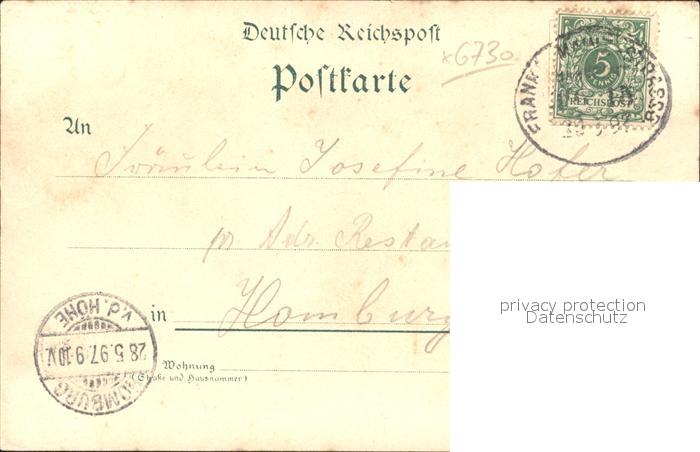 Deutsche Reichspost
x6730
Postkarte
5
REICHSPOST
FRANK
An
Fräulein Josefine Hofer
pr. Adr. Resta
in Homburg
privacy protection
Datenschutz
Wohnung
(Straße und Hausnummer)
HOMBURG
28.5.97.9-10V.
v.d. HÖHE